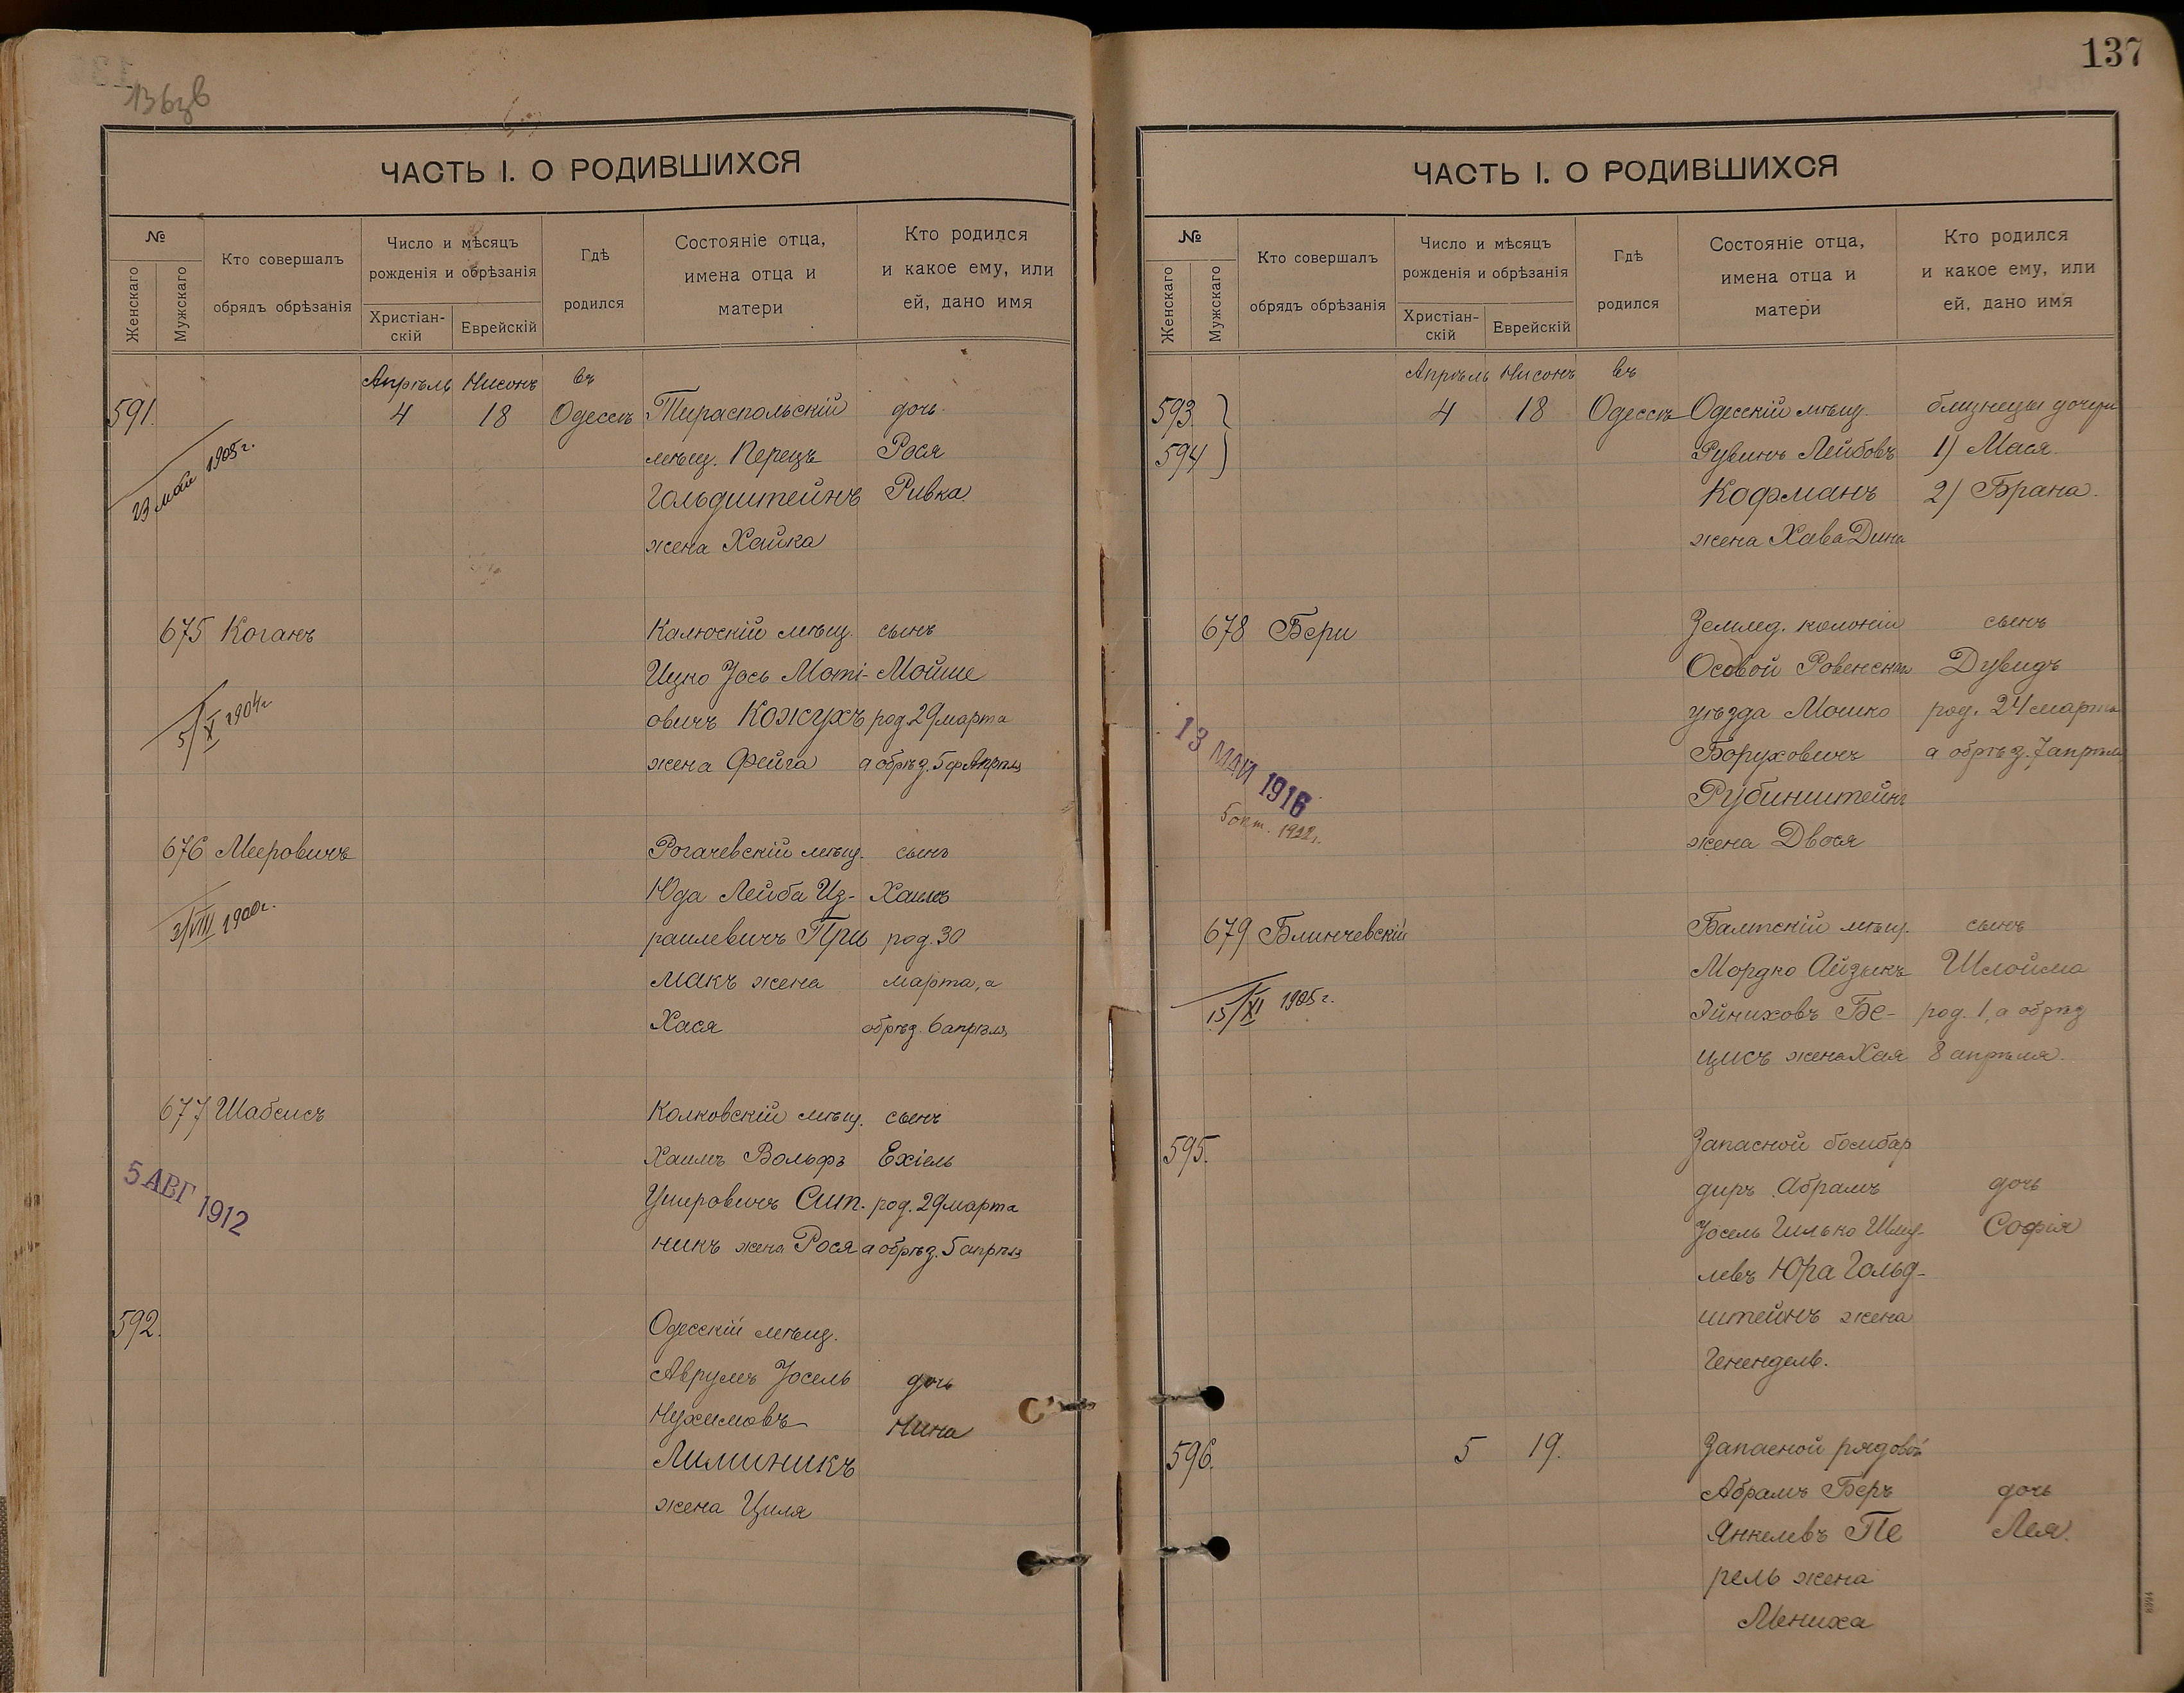 136зв
ЧАСТЬ I. О РОДИВШИХСЯ
№
Женскаго
Мужскаго
Кто совершалъ
обрядъ обрѣзанія
Число и мѣсяцъ
рожденія и обрѣзанія
Христіан-
скій
Еврейскій
Гдѣ
родился
Состояніе отца,
имена отца и
матери
Кто родился
и какое ему, или
ей, дано имя
Апрѣль Нисонъ въ
591. 4 18 Одессѣ Тираспольскій дочь
мѣщ. Перецъ Рося
Гольдштейнъ Ривка
жена Хайка
23 мая 1905 г.
675 Коганъ Калюскій мѣщ. сынъ
Ицко Іось Моті- Мойше
овичъ Кожухъ род. 29 марта
жена Фейга а обрѣз. 5 апрѣля
5/X 1904 г
676 Мееровичъ Рогачевскій мѣщ. сынъ
Юда Лейба Из- Хаимъ
раилевичъ При род. 30
макъ жена марта, а
Хася обрѣз. 6 апрѣля
3/VIII 1900 г.
677 Шабсисъ Колковскій мѣщ. сынъ
Хаимъ Вольфъ Ехіель
Ушеровичъ Сит- род. 29 марта
никъ жена Рося а обрѣз. 5 апрѣля
5 АВГ 1912
592. Одесскій мѣщ.
Аврумъ Іосель дочь
Нухимовъ Нина
Лиминикъ
жена Циля
137
ЧАСТЬ I. О РОДИВШИХСЯ
№
Женскаго
Мужскаго
Кто совершалъ
обрядъ обрѣзанія
Число и мѣсяцъ
рожденія и обрѣзанія
Христіан-
скій
Еврейскій
Гдѣ
родился
Состояніе отца,
имена отца и
матери
Кто родился
и какое ему, или
ей, дано имя
Апрѣль Нисонъ въ
593. 4 18 Одессѣ Одесскій мѣщ. близнецы дочери
594 Рувинъ Лейбовъ 1) Мася.
Кофманъ 2) Брана.
жена Хава Дина
678 Бери Землед. колоніи сынъ
Осовой Ровенскаго Дувидъ
уѣзда Мошко род. 24 марта
Боруховичъ а обрѣз. 7 апрѣля
Рубинштейнъ
жена Двося
13 МАИ 1916
5 окт. 1922 г.
679 Блинчевскій Балтскій мѣщ. сынъ
Мордко Айзыкъ Шлойма
Эйниховъ Бе- род. 1, а обрѣз
цисъ жена Хая 8 апрѣля.
15/XI 1905 г.
595. Запасной бомбар
диръ Абрамъ дочь
Іосель Гилько Шму- Софія
левъ Юра Гольд-
штейнъ жена
Генендель.
596. 5 19. Запасной рядовой
Абрамъ Беръ дочь
Янкелевъ Пе Лея.
рель жена
Мениха
8994